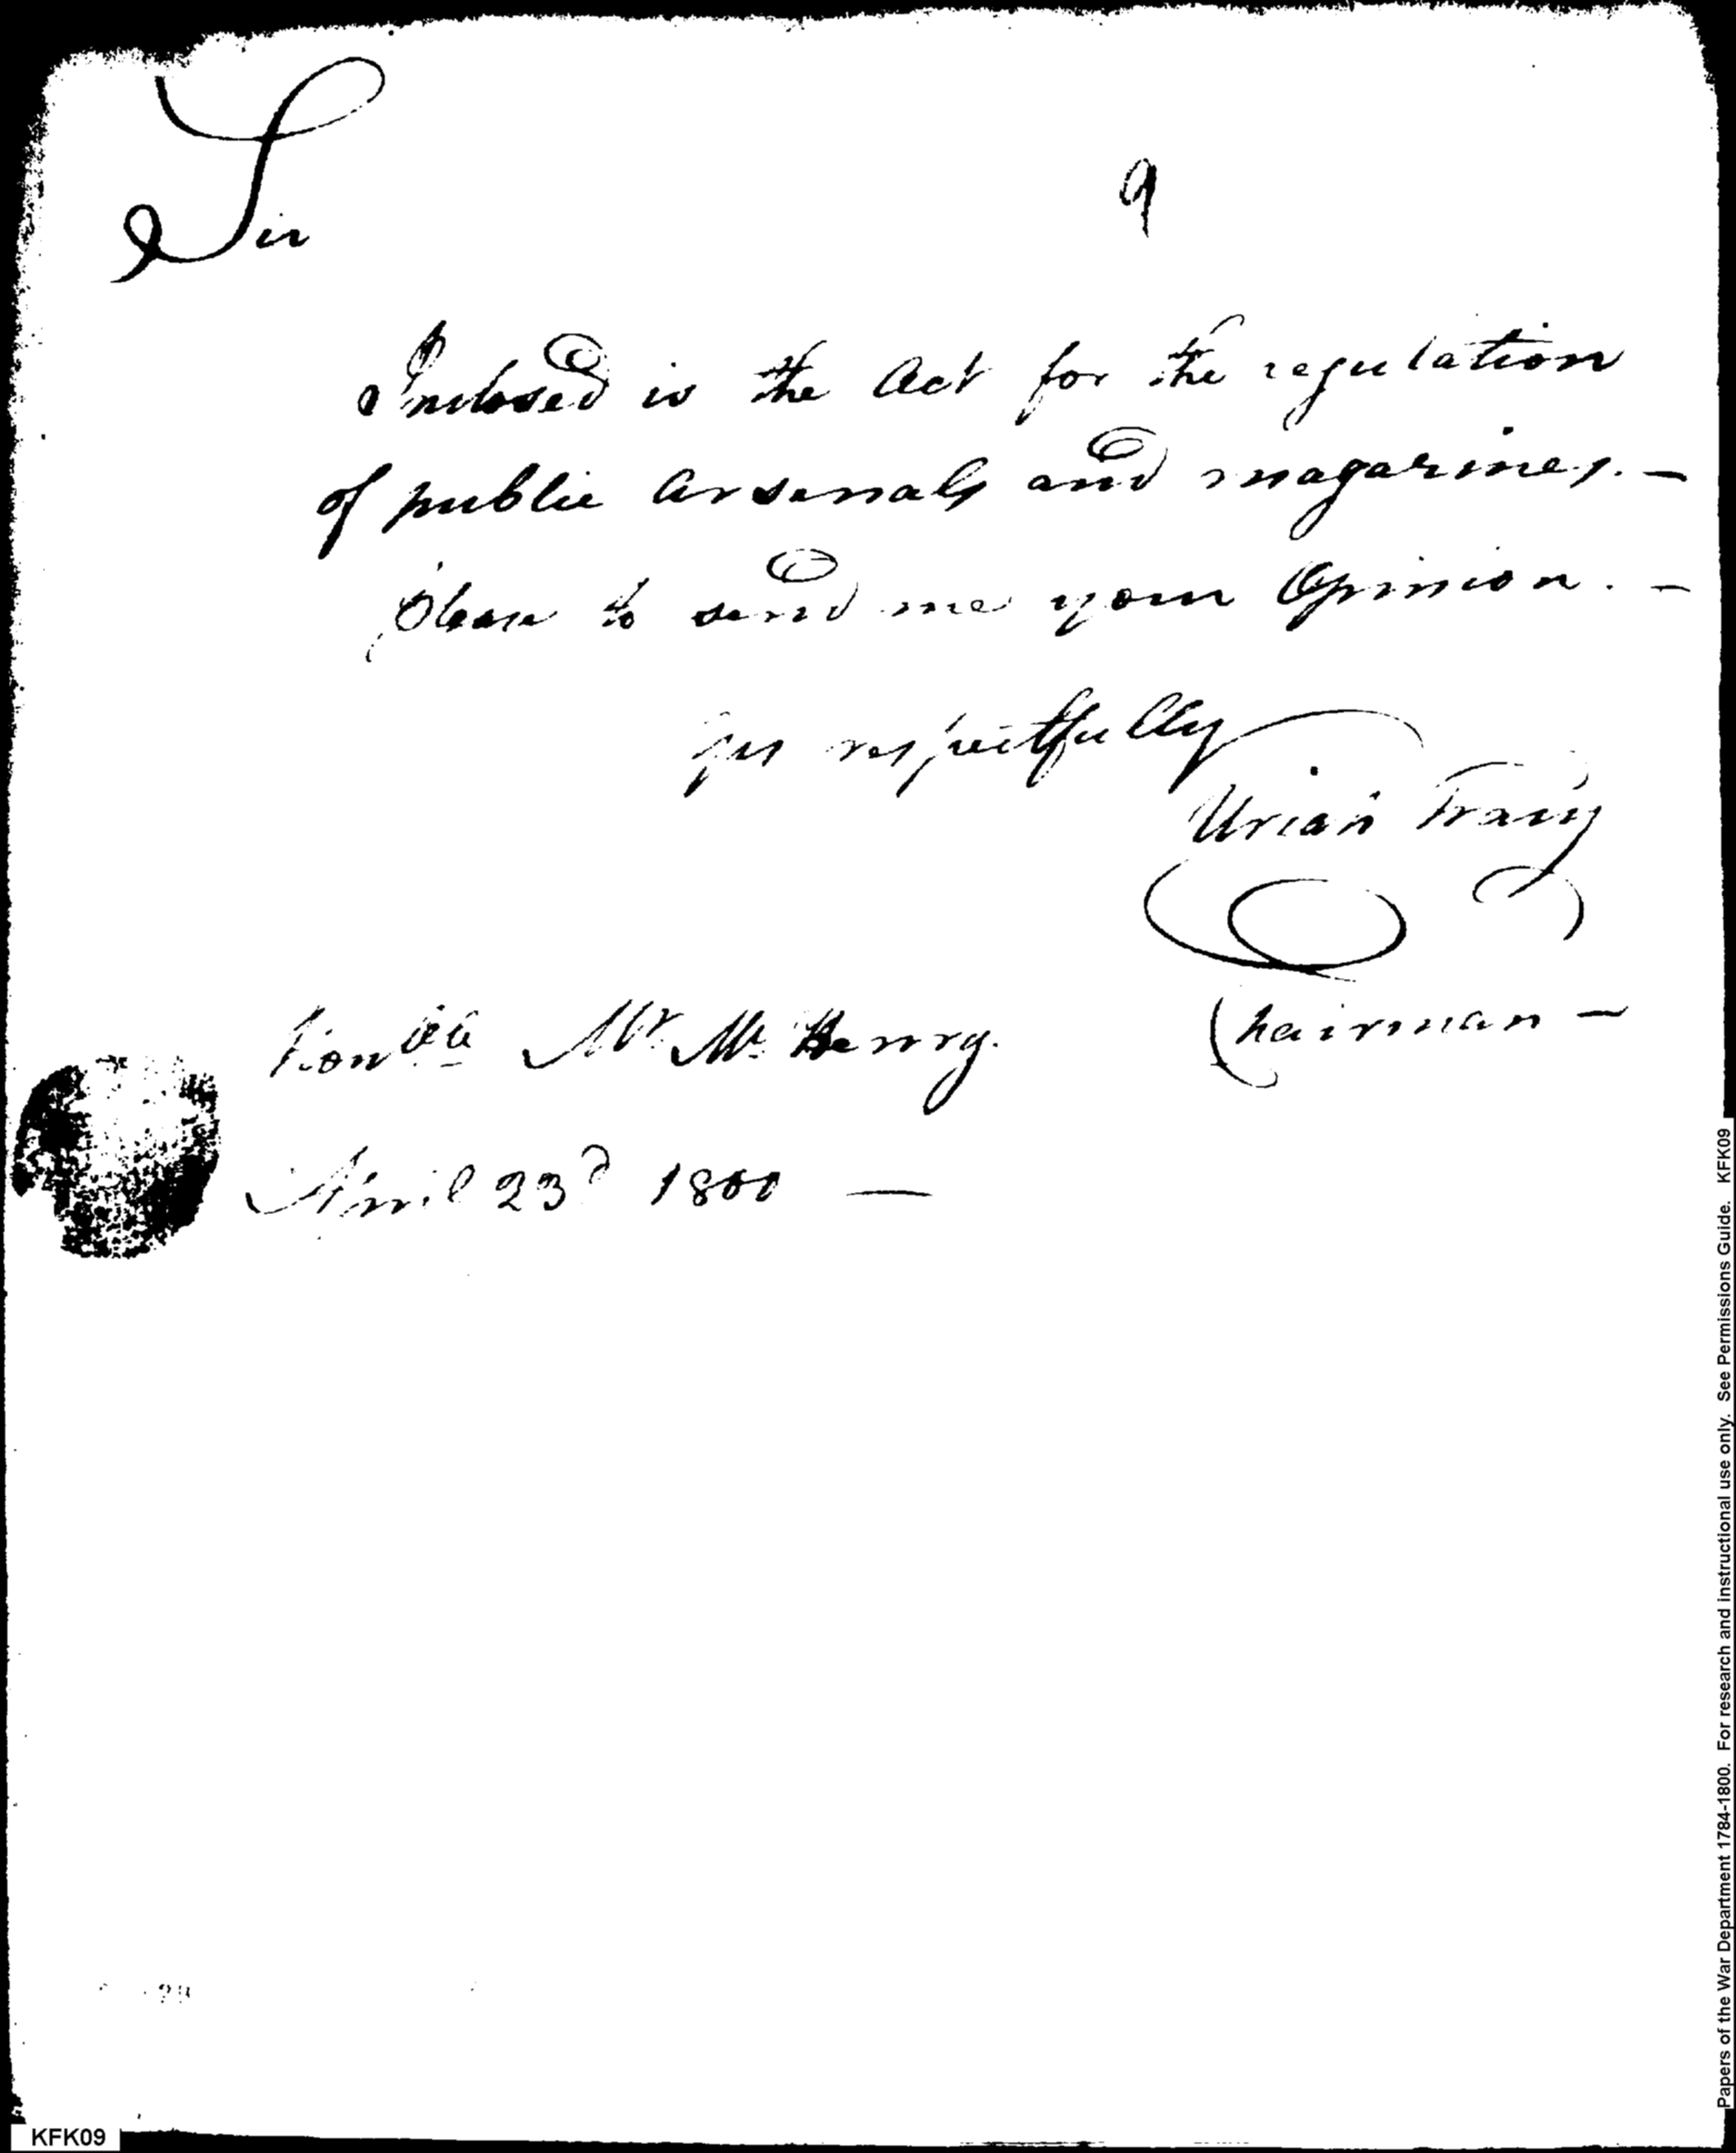 Sir
9
Inclosed is the Act for the regulation
of public Arsenals and magazines. —
Please to send me your Opinion. —
yrs respectfully
Uriah Tracy
Chairman —
honble Mr. Mc. Henry.
April 23d 1800 —
KFK09
Papers of the War Department 1784-1800. For research and instructional use only. See Permissions Guide. KFK09